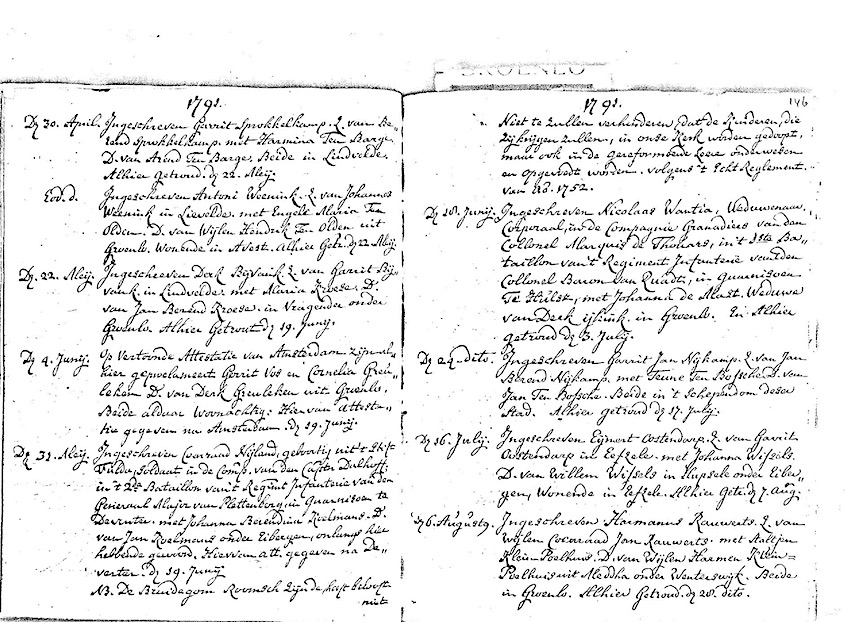 GROENLO
1791.
Dg 30. April. Ingeschreven Garrit Sprokkelkamp. Z. van Be„
rend Sprokkelkamp. met Harmina Ten Barge
D. van Arend Ten Barge. Beide in Lindvelde.
Alhier Getroud. dg 22. Meij.
Eod. d. Ingeschreven Antoni Weenink. Z. van Johannes
Weenink in Lievelde. met Engele Maria Ten
Olden. D. van Wijlen Hendrik Ten Olden uit
Groenlo. Wonende in Avest. Alhier Getr. dg 22. Meij.
Dg 22. Meij. Ingeschreven Derk Bijvank Z. van Garrit Bij„
vank. in Lindvelde. met Maria Kroese. D.
van Jan Berend Kroese. in Vragender onder
Groenlo. Alhier Getrout dg 19. Junij.
Dg 4. Junij. Op Vertoonde Attestatie van Amsterdam zijn al„
hier geproclameert Gerrit Vos en Cornelia Greu„
leken D. van Derk Greuleken uit Groenlo.
Beide aldaar Woonachtig: Hier van Attesta„
tie gegeven na Amsterdam. dg 19. Junij.
Dg 31. Meij. Ingeschreven Coenraad Nijland, geboortig uit 't
Soldaat in de Comp. van den
in 't 2de Bataillon van 't Regimt Infanterie van den
Generaal Major van Plettenberg, in Guarnisoen te
Deventer. met Johanna Berendina Roelmans. D.
van Jan Roelmans onder Eibergen, onlangs hier
hebbende gewoond. Hiervan att. gegeven na De„
venter. dg 19. Junij
NB. De Bruidegom Roomsch Zijnde, heeft belooft
niet
1791.
146
Niet te zullen verhinderen, dat de Kinderen, die
Zij krijgen zullen, in onse Kerk worden gedoopt,
maar ook in de gereformeerde Leere onderwesen
en opgevoedt worden. volgens 't Echt Reglement.
van Ao. 1752.
Dg 28. Junij. Ingeschreven Nicolaas Wautia, Weduwenaar
Corporaal, in de Compagnie Granadiers van den
Collonel Marquis de Thouars, in 't 1ste Ba„
taillon van 't Regiment Infanterie van den
Collonel Baron van Quadt, in Guarnisoen
Te Hulst, met Johanna de Mast. Weduwe
van Derk in Groenlo. En Alhier
getroud dg 3. Julij.
Dg 29. dito. Ingeschreven Garrit Jan Nijkamp. Z. van Jan
Berend Nijkamp. met Teune Ten Bossche. D. van
Jan Ten Bossche. Beide in 't Schependom deser
Stad. Alhier getroud dg 17. Julij.
Dg 16. Julij. Ingeschreven Egbert Oostendarp. Z. van Garrit
Oostendarp in Eefzele. met Johanna Wissels.
D. van Willem Wissels in Hupsele onder Eiber„
gen, Wonende in Eefzele. Alhier Getr. dg 7. Aug.
dg 6. Augustg. Ingeschreven Harmanus Rauwerts. Z. van
Wijlen Coenraad Jan Rauwerts. met Aaltjen
Klein Poelhuis. D. van Wijlen Harmen Klein=
Poelhuis uit Meddho onder Wenterswijk. Beide
in Groenlo. Alhier Getroud. dg 28. dito.